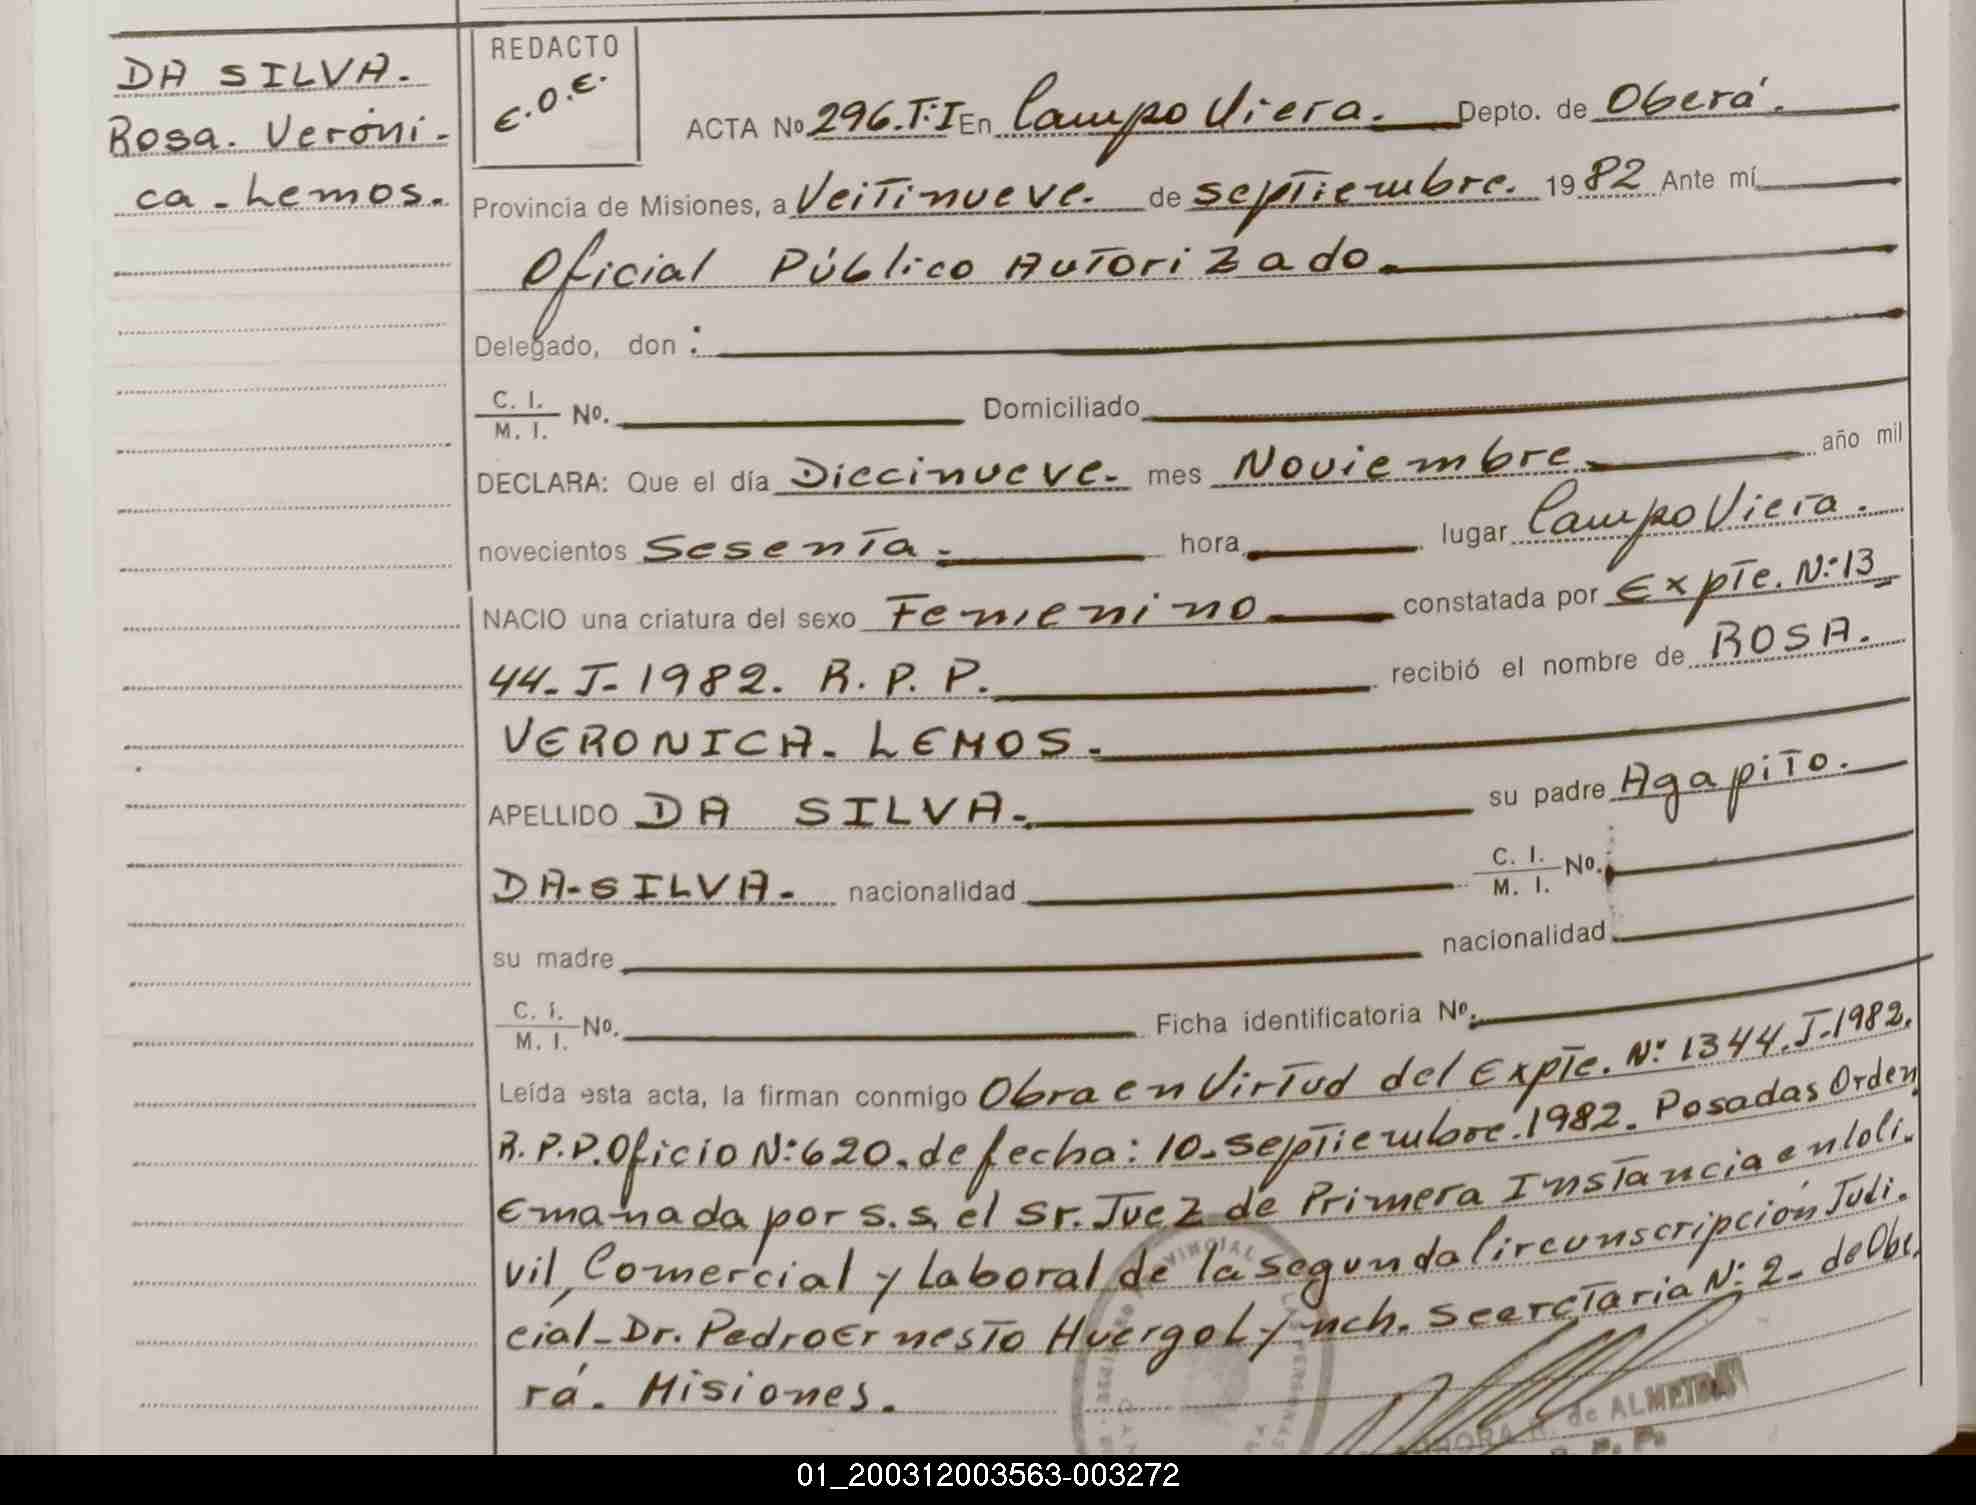 DA SILVA.
Rosa. Veróni-
ca - Lemos.
REDACTO
E.O.E.
ACTA No 296.T:I En Campo Viera. Depto. de Oberá.
Provincia de Misiones, a Veitinueve. de septiembre. 1982 Ante mí
Oficial Público Autorizado.
Delegado, don :
C. I. / M. I. No. Domiciliado
DECLARA: Que el día Diecinueve. mes Noviembre. año mil
novecientos Sesenta. hora lugar Campo Viera.
NACIO una criatura del sexo Femenino constatada por Expte. N:13
44-J-1982. R.P.P. recibió el nombre de ROSA.
VERONICA. LEMOS.
APELLIDO DA SILVA. su padre Agapito.
DA-SILVA. nacionalidad C. I. / M. I. No.
su madre nacionalidad
C. I. / M. I. No. Ficha identificatoria No.
Leída esta acta, la firman conmigo Obra en Virtud del Expte. N: 1344.J-1982.
R.P.P. Oficio N:620. de fecha: 10-septiembre.1982. Posadas Orden
Emanada por S.S, el Sr. Juez de Primera Instancia en lo Ci.
vil, Comercial y Laboral de la segunda Circunscripción Judi.
cial-Dr. Pedro Ernesto Huergo Lynch. Secretaria N: 2- de Obe.
rá. Misiones.
de ALMEIDA
01_200312003563-003272